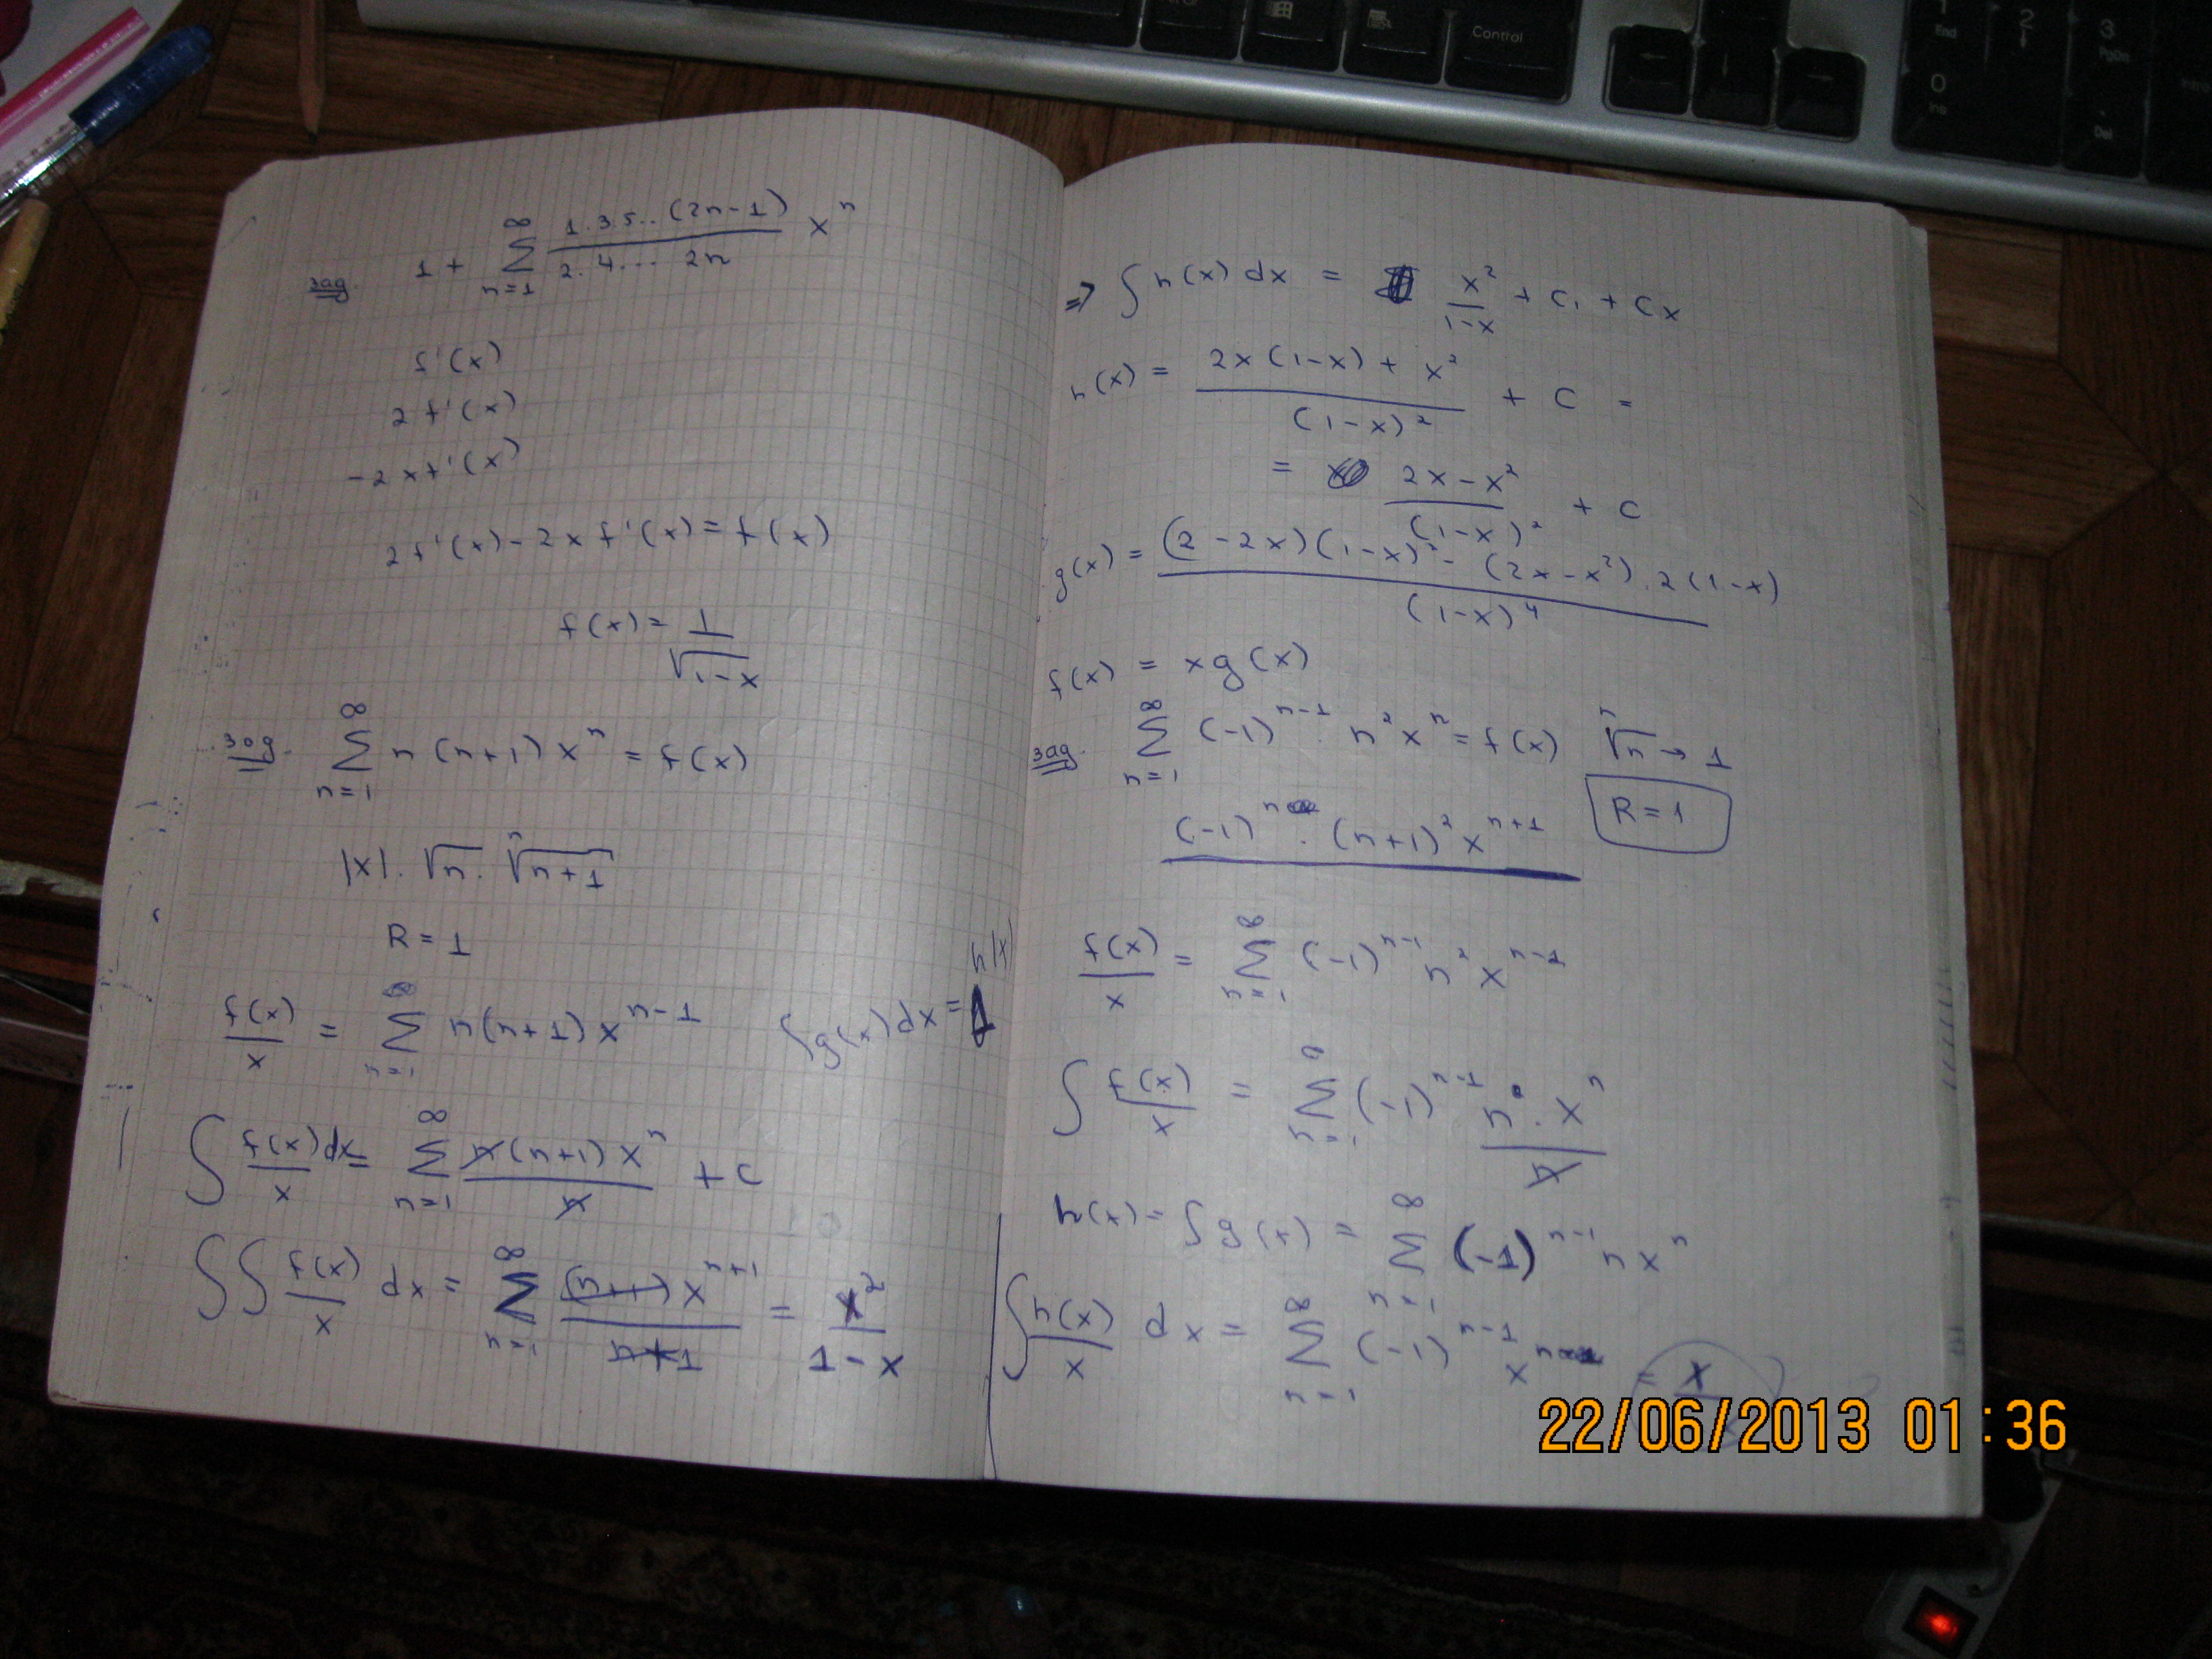 зад. 1 + ∞ Σ n=1 1.3.5..(2n-1) / 2.4... 2n x^n
f'(x)
2f'(x)
-2xf'(x)
2f'(x)-2xf'(x)=f(x)
f(x)= 1/√1-x
зад. ∞ Σ n=1 n(n+1)x^n = f(x)
|x|. √n. ^n√n+1
R=1
f(x)/x = ∞ Σ n=1 n(n+1)x^n-1 ∫g(x)dx= h(x)
∫ f(x)/x dx= ∞ Σ n=1 n(n+1)x^n / n + c
∫∫ f(x)/x dx = ∞ Σ n=1 (n+1)x^n+1 / n+1 = x^2 / 1-x
=> ∫h(x)dx = x^2 / 1-x + c, + cx
h(x) = 2x(1-x)+ x^2 / (1-x)^2 + c =
= 2x-x^2 / (1-x)^2 + c
g(x) = (2-2x)(1-x)^2 - (2x-x^2).2(1-x) / (1-x)^4
f(x) = xg(x)
зад. ∞ Σ n=1 (-1)^n-1 . n^2 x^n = f(x) ^n√n → 1
(-1)^n . (n+1)^2 x^n+1 R=1
f(x)/x = ∞ Σ n=1 (-1)^n-1 n^2 x^n-1
∫ f(x)/x = Σ n=1 (-1)^n-1 n . x^n / n
h(x)= ∫g(x) = ∞ Σ n=1 (-1)^n-1 n x^n
∫ h(x)/x dx = ∞ Σ n=1 (-1)^n-1 x^n = x
22/06/2013 01:36
Control
1 End
2
3 PgDn
0 Ins
. Del